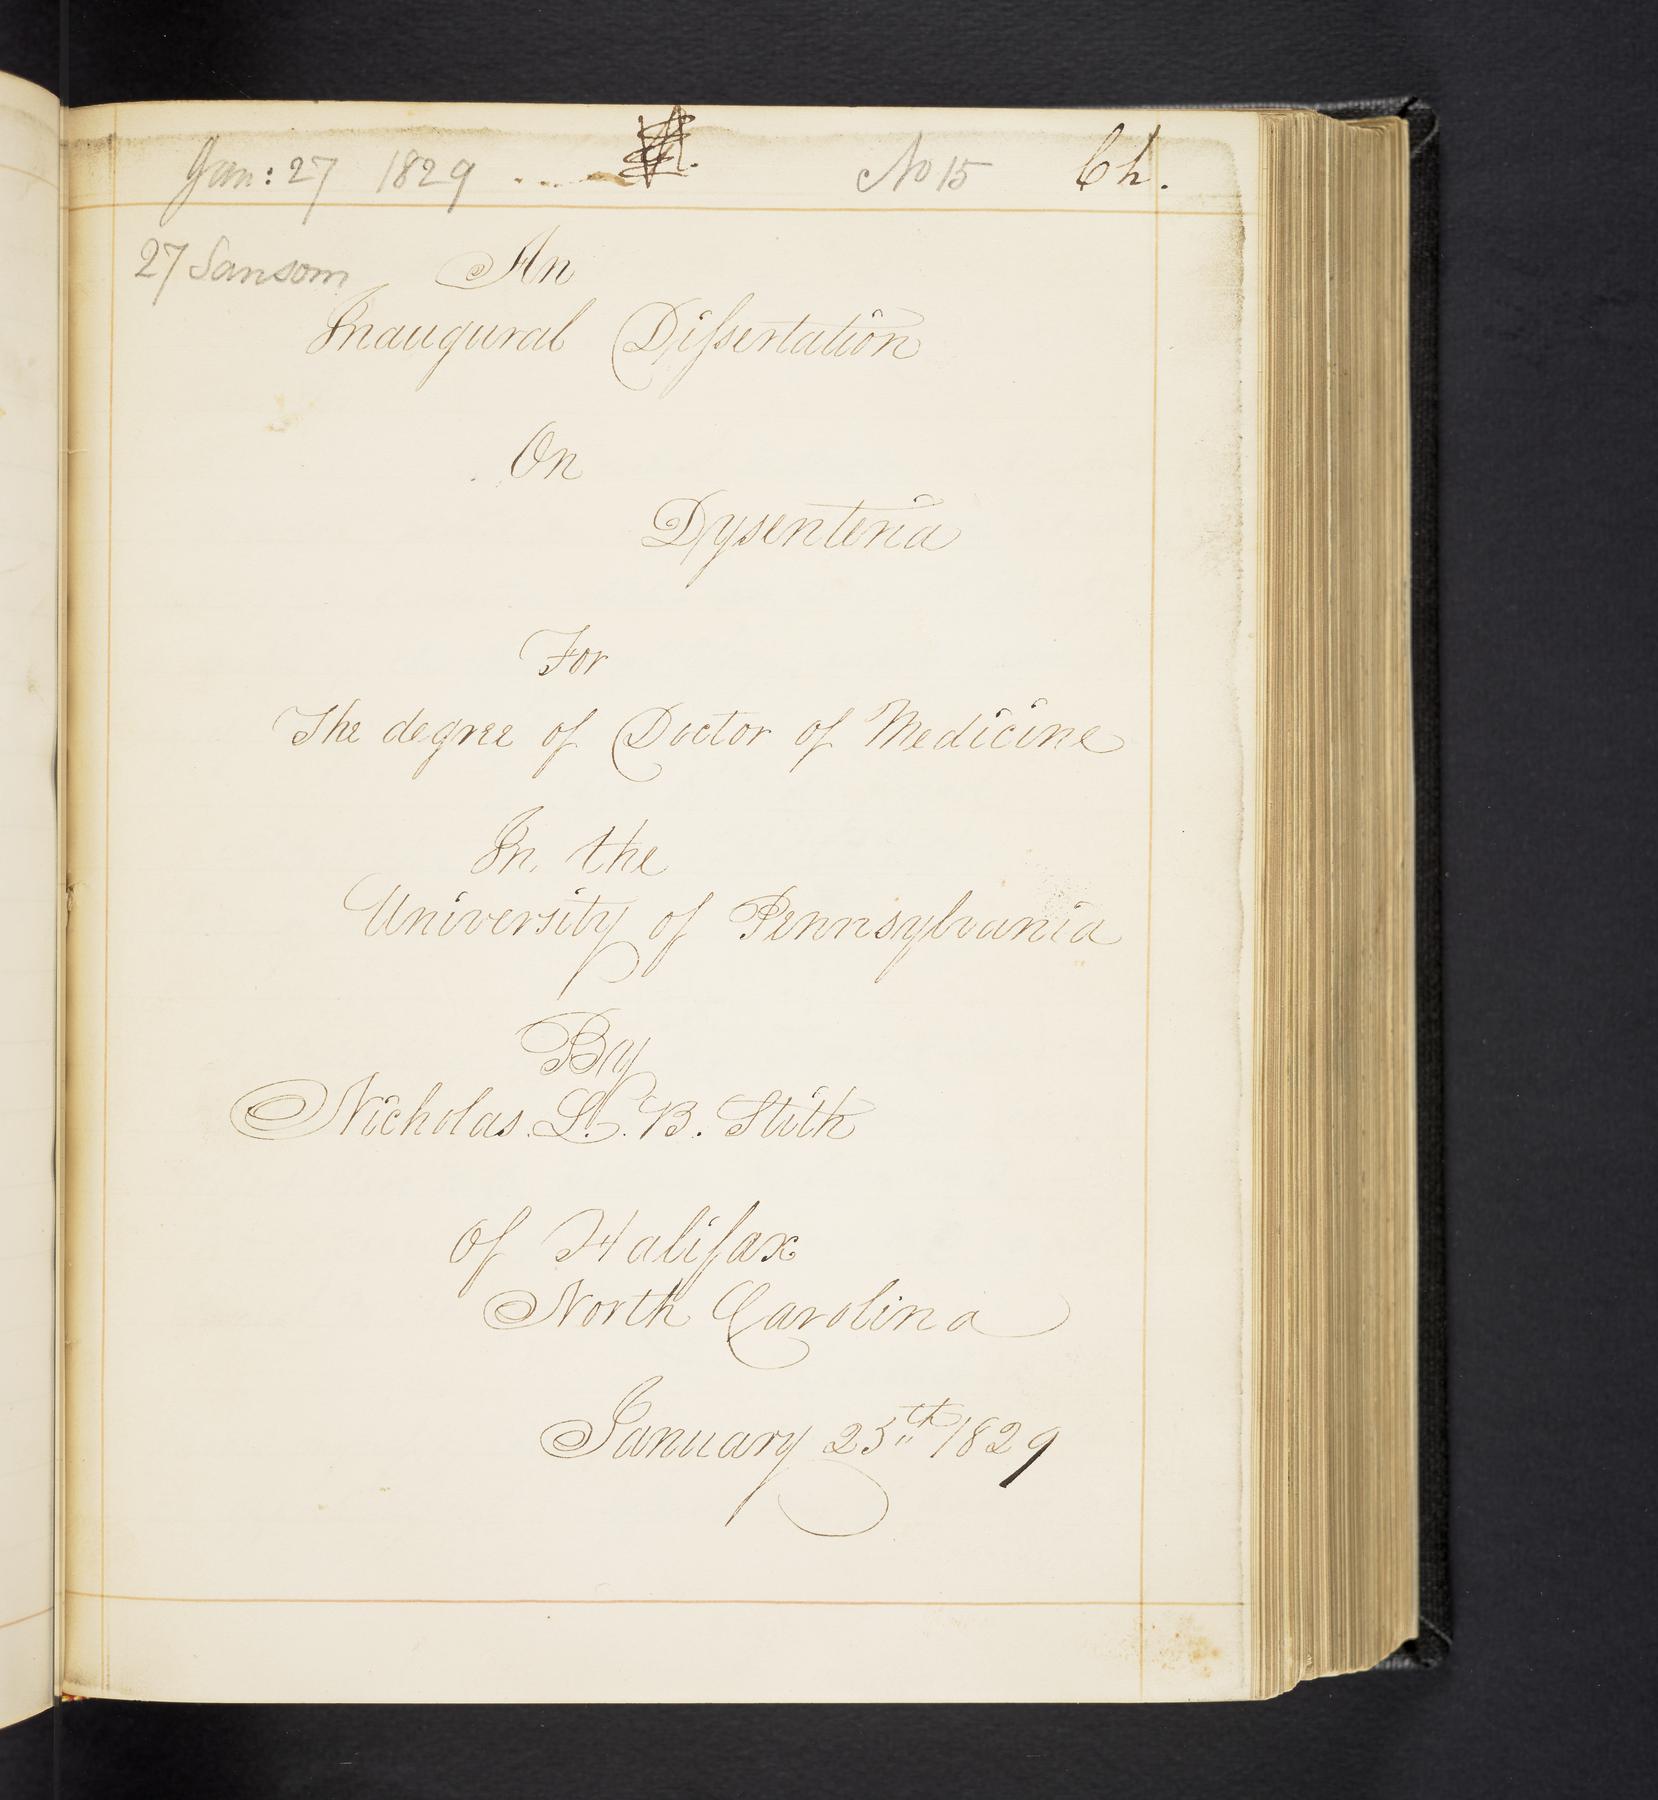 Jan: 27 1829 No 15 Ch.
27 Sansom
An
Inaugural Dissertation
On
Dysenteria
For
The degree of Doctor of Medicine
In the
University of Pennsylvania
By
Nicholas L. B. Stith
of Halifax
North Carolina
January 25th 1829